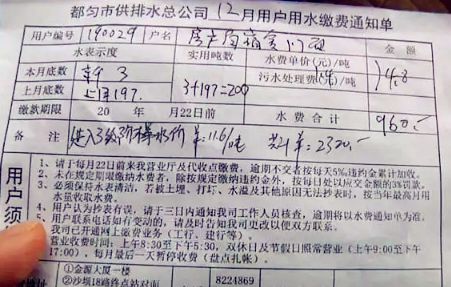 都匀市供排水总公司 12月用户用水缴费通知单
用户编号 190029 户名 房产局宿舍
水表示度 实用吨数 水费单价(元)/吨 金额
本月底数 新 3 污水处理费(元)/吨 4.8
上月底数 上年197. 3+197=200
缴款期限 20 年 月22日前 水费合计 960.-
备注 进入3级阶梯水价 11.6/吨 2320.-
用户须
1、请于每月22日前来我营业厅及代收点缴费,逾期不交者按每天5‰违约金累计加收。
2、未在规定期限缴纳水费者,除按规定缴纳违约金外,按每日处以应交金额的3%罚款。
3、必须保持水表清洁,若被土埋、打圬、水溢及其他原因无法抄表时,按当年最高月用
水量收取水费。
4、用户认为抄表有误,请于三日内通知我司工作人员核查,逾期将以水费通知单为准。
用户联系电话如有变动的,请及时告知我司可更改以便双方联系。
我司已开通网上缴费业务(工行、建行等)
营业收费时间:上午8:30至下午5:30,双休日及节假日照常营业(上午9:00至下午
17:00),每月最后一天暂停收费(盘点扎帐)。
①金源大厦一楼
②沙坝18路终点站对面 8224869